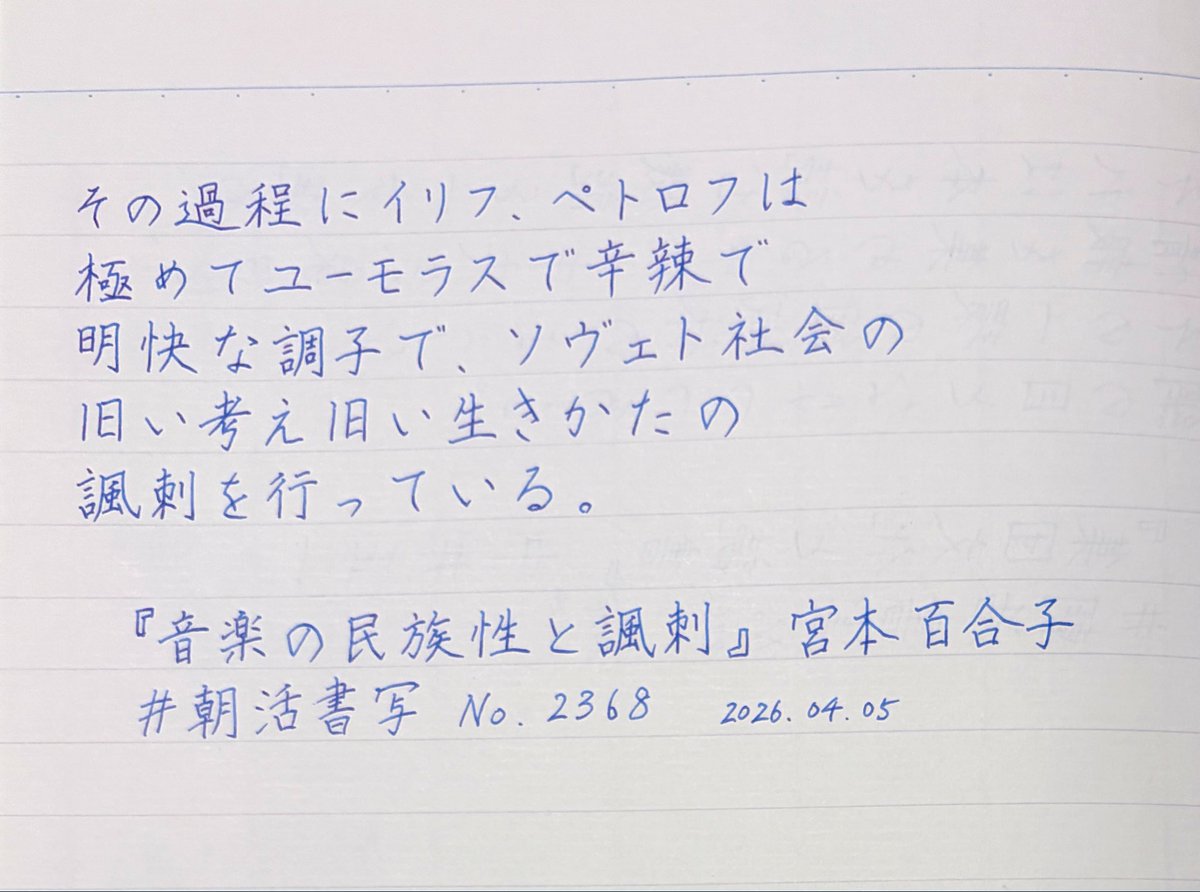 その過程にイリフ、ペトロフは
極めてユーモラスで辛辣で
明快な調子で、ソヴェト社会の
旧い考え旧い生きかたの
諷刺を行っている。
『音楽の民族性と諷刺』宮本百合子
#朝活書写 No. 2368 2026.04.05